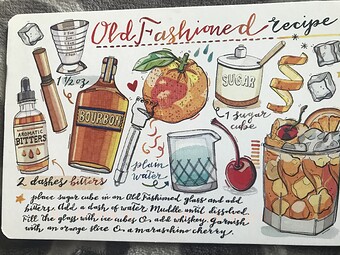 Old Fashioned recipe
1 1/2 oz
SUGAR
BOURBON
AROMATIC
BITTERS
1 sugar
cube
plain
water
2 dashes bitters
place sugar cube in an Old Fashioned glass and add
bitters. Add a dash of water. Muddle until dissolved.
Fill the glass with ice cubes & add whiskey. Garnish
with an orange slice & a maraschino cherry.